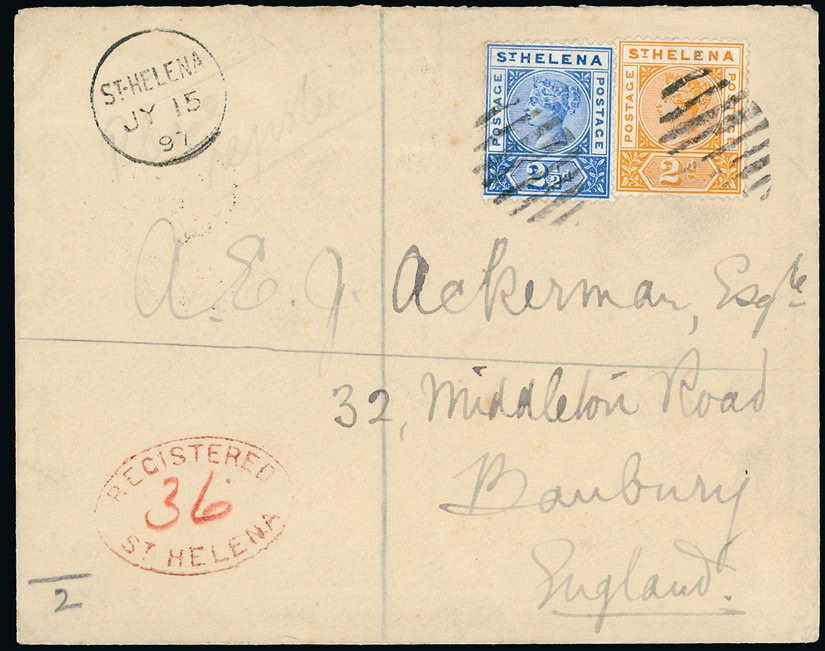 ST. HELENA
JY 15
97
Please
register
ST HELENA
POSTAGE
POSTAGE
2½d
ST HELENA
POSTAGE
POSTAGE
2d
A. E. J. Ackerman, Esqre
32, Middleton Road
Banbury
England.
REGISTERED
36
ST HELENA
2